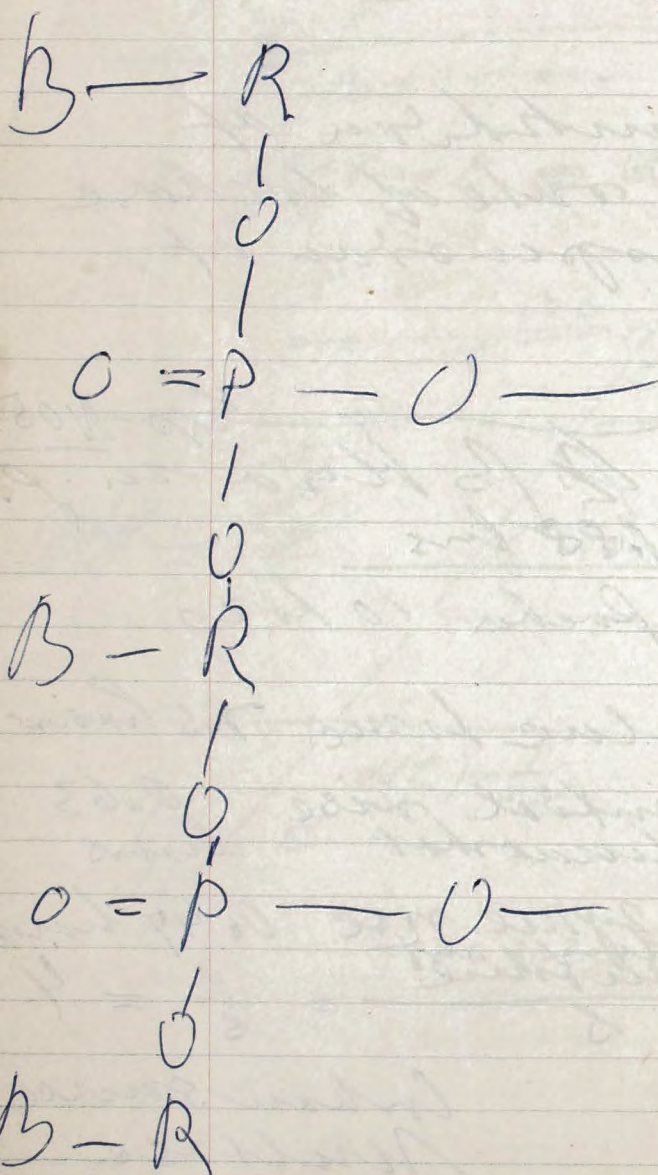 B — R
|
O
|
O = P — O —
|
O
|
B — R
|
O
|
O = P — O —
|
O
B — R